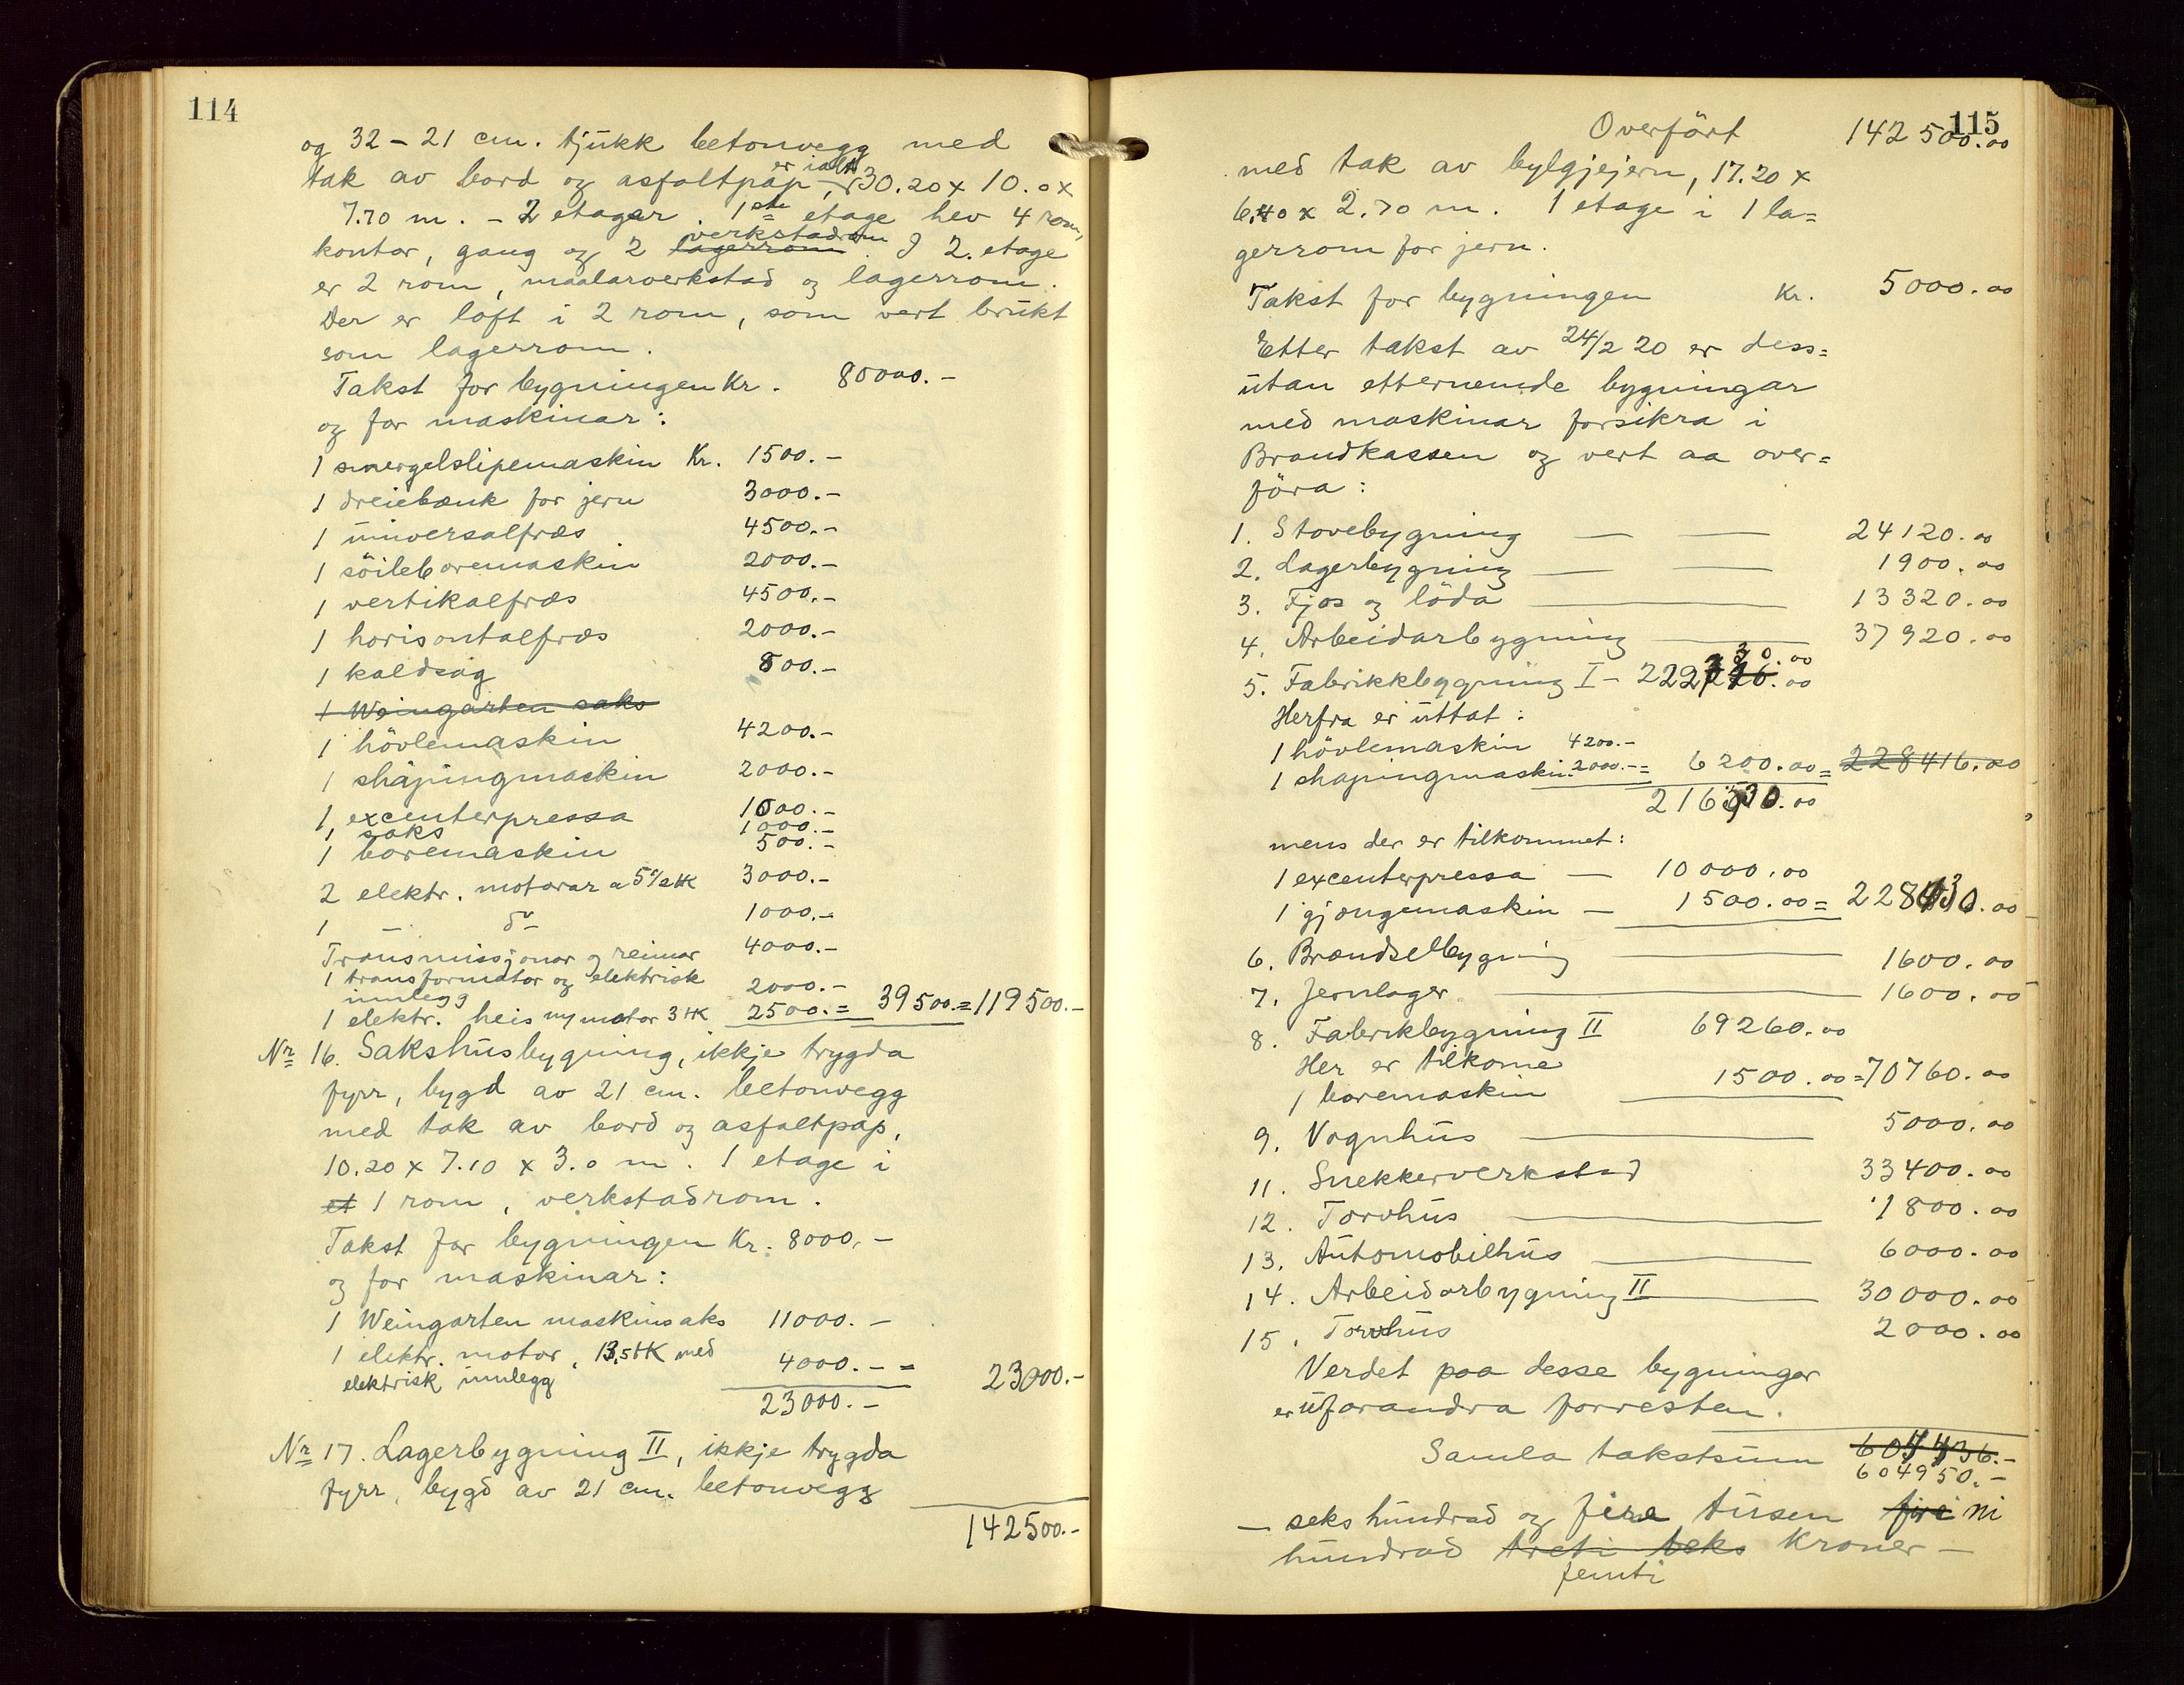 114
og 32 – 21 cm. tjukk betonvegg med
tak av bord og asfaltpap, er ialt 30.20 x 10.0 x
7.70 m. – 2 etager. 1ste etage hev 4 rom,
kontor, gang og 2 lagerrom verkstadrom. I 2. etage
er 2 rom, maalarverkstad og lagerrom.
Der er loft i 2 rom, som vert brukt
som lagerrom.
Takst for bygningen Kr. 80000.–
og for maskinar:
1 smergelslipemaskin Kr. 1500.–
1 dreiebænk for jern 3000.–
1 universalfræs 4500.–
1 söileboremaskin 2000.–
1 vertikalfræs 4500.–
1 horisontalfræs 2000.–
1 kaldsag 800.–
1 Weingarten saks
1 hövlemaskin 4200.–
1 shapingmaskin 2000.–
1 excenterpressa 1000.–
1 saks 1000.–
1 boremaskin 500.–
2 elektr. motorar a 5 1/2 HK 3000.–
1 – do 1000.–
Transmissjonar og reimar 4000.–
1 transformator og elektrisk
innlegg 2000.–
1 elektr. heis ny motor 3 HK 2500.= 39500.= 119500.–
Nr 16. Sakshusbygning, ikkje trygda
fyrr, bygd av 21 cm. betonvegg
med tak av bord og asfaltpap,
10.20 x 7.10 x 3.0 m. 1 etage i
et 1 rom, verkstadrom.
Takst for bygningen Kr. 8000.–
og for maskinar:
1 Weingarten maskinsaks 11000.–
1 elektr. motor, 13,5 HK med
elektrisk innlegg 4000.– = 23000.–
23000.–
Nr 17. Lagerbygning II, ikkje trygda
fyrr, bygd av 21 cm. betonvegg
142500.–
115
Overført 142500.00
med tak av bylgjejern, 17.20 x
6.40 x 2.70 m. 1 etage i 1 la=
gerrom for jern.
Takst for bygningen Kr. 5000.00
Etter takst av 24/2 20 er dess=
utan etternemde bygningar
med maskinar forsikra i
Brandkassen og vert aa over=
föra:
1. Stovebygning — — 24120.00
2. Lagerbygning — — 1900.00
3. Fjos og löda — 13320.00
4. Arbeidarbygning — 37920.00
30.00
5. Fabrikkbygning I – 222716.00
Herfra er uttat:
1 hövlemaskin 4200.–
1 shapingmaskin 2000.–= 6200.00= 228416.00
216530.00
mens der er tilkommet:
1 excenterpressa — 10000.00
1 gjengemaskin — 1500.00= 228030.00
6. Brændselbygning — 1600.00
7. Jernlager — 1600.00
8. Fabrikbygning II 69260.00
Her er tilkome
1 boremaskin 1500.00=70760.00
9. Vognhus — 5000.00
11. Snekkerverkstad 33400.00
12. Torvhus — 1800.00
13. Automobilhus — 6000.00
14. Arbeidarbygning II — 30000.00
15. Torvhus 2000.00
Verdet paa desse bygningar
er uforandra forresten.
Samla takstsum 604436.–
604950.–
— seks hundrad og fire tusen fire ni
hundrad treti seks Kroner —
femti